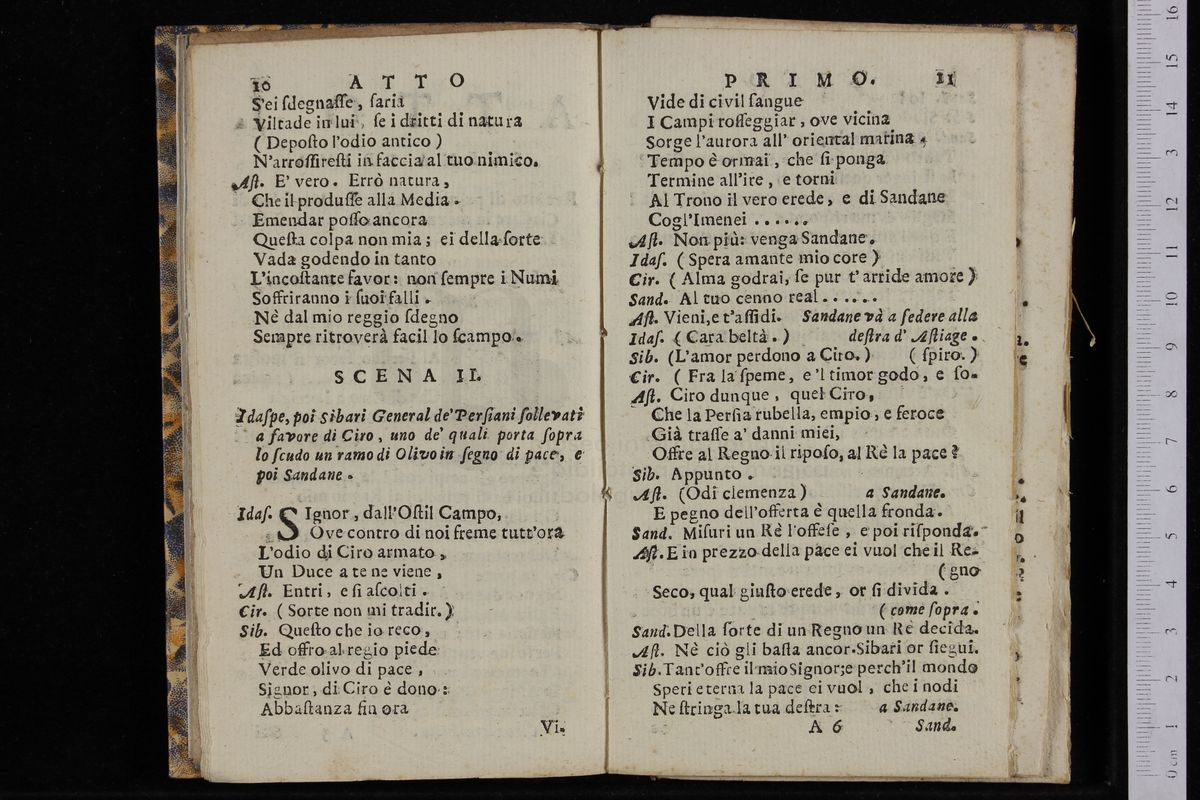 10 ATTO
Sei ſdegnaſſe, ſaria
Viltade in lui, ſe i dritti di natura
( Depoſto l'odio antico )
N'arroſſireſti in faccia al tuo nimico.
Aſt. E' vero. Errò natura,
Che il produſſe alla Media.
Emendar poſſo ancora
Queſta colpa non mia; ei della ſorte
Vada godendo in tanto
L'incoſtante favor: non ſempre i Numi
Soffriranno i ſuoi falli.
Nè dal mio reggio ſdegno
Sempre ritroverà facil lo ſcampo.
SCENA II.
Idaſpe, poi Sibari General de' Perſiani ſollevati
a favore di Ciro, uno de' quali porta ſopra
lo ſcudo un ramo di Olivo in ſegno di pace, e
poi Sandane.
Idaſ. SIgnor, dall'Oſtil Campo,
Ove contro di noi freme tutt'ora
L'odio di Ciro armato,
Un Duce a te ne viene,
Aſt. Entri, e ſi aſcolti.
Cir. ( Sorte non mi tradir. )
Sib. Queſto che io reco,
Ed offro al regio piede
Verde olivo di pace,
Signor, di Ciro è dono:
Abbaſtanza fin ora
Vi-
PRIMO. 11
Vide di civil ſangue
I Campi roſſeggiar, ove vicina
Sorge l'aurora all' oriental marina.
Tempo è ormai, che ſi ponga
Termine all'ire, e torni
Al Trono il vero erede, e di Sandane
Cogl'Imenei ......
Aſt. Non più: venga Sandane.
Idaſ. ( Spera amante mio core )
Cir. ( Alma godrai, ſe pur t'arride amore )
Sand. Al tuo cenno real......
Aſt. Vieni, e t'aſſidi. Sandane và a ſedere alla
Idaſ. ( Cara beltà. ) deſtra d' Aſtiage.
Sib. (L'amor perdono a Ciro. ) ( ſpiro. )
Cir. ( Fra la ſpeme, e 'l timor godo, e ſo-
Aſt. Ciro dunque, quel Ciro,
Che la Perſia rubella, empio, e feroce
Già traſſe a' danni miei,
Offre al Regno il ripoſo, al Rè la pace?
Sib. Appunto.
Aſt. (Odi clemenza ) a Sandane.
E pegno dell'offerta è quella fronda.
Sand. Miſuri un Rè l'offeſe, e poi riſponda.
Aſt. E in prezzo della pace ei vuol che il Re-
( gno
Seco, qual giuſto erede, or ſi divida.
( come ſopra.
Sand. Della ſorte di un Regno un Rè decida.
Aſt. Nè ciò gli baſta ancor. Sibari or ſiegui.
Sib. Tant'offre il mio Signor; e perch'il mondo
Speri eterna la pace ei vuol, che i nodi
Ne ſtringa la tua deſtra: a Sandane.
A 6 Sand.